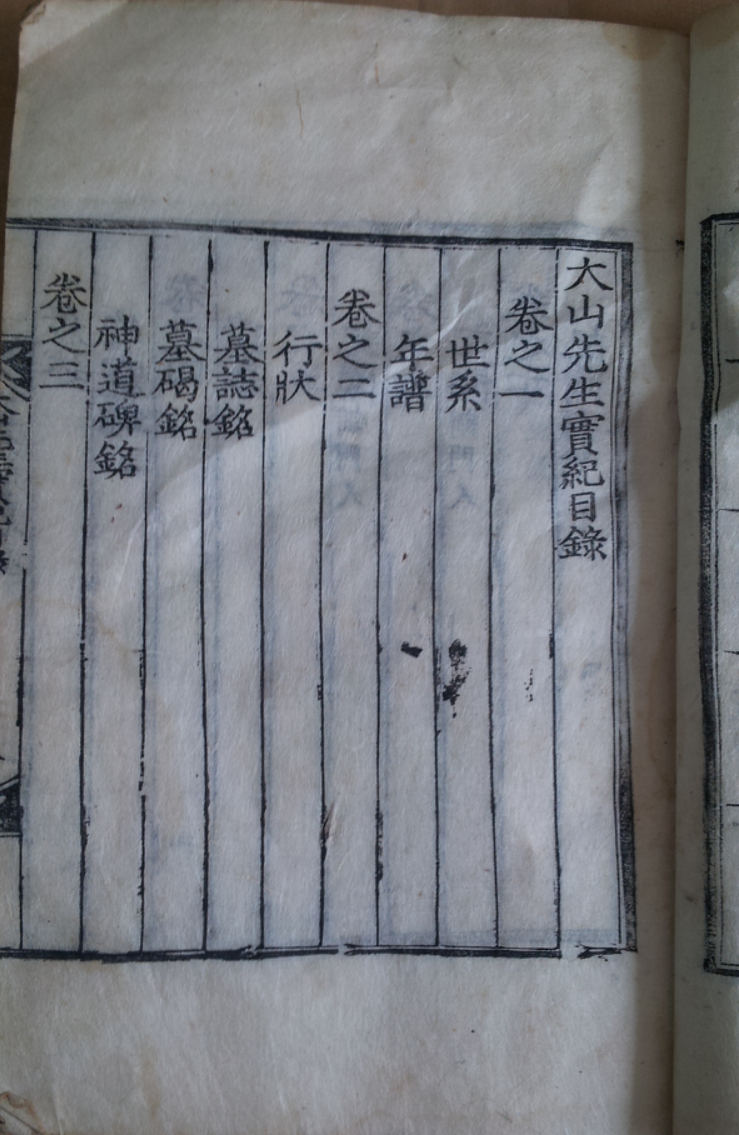 大山先生實紀目錄
卷之一
世系
年譜
卷之二
行狀
墓誌銘
墓碣銘
神道碑銘
卷之三